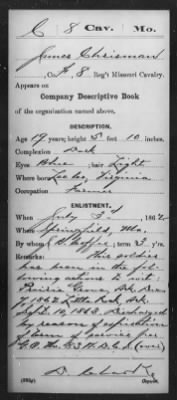 C 8 Cav. Mo.
James Chrisman
, Co. F, 8 Reg't Missouri Cavalry.
Appears on
Company Descriptive Book
of the organization named above.
DESCRIPTION.
Age 19 years; height 5 feet 10 inches.
Complexion Dark
Eyes Blue ; hair Light
Where born Lee Co, Virginia
Occupation Farmer
ENLISTMENT.
When July 3d , 1862.
Where Springfield, Mo.
By whom ; term 3 y'rs.
Remarks: This soldier
has been in the fol-
lowing actions to wit:
Prairie Grove, Ark. Dec.
7, 1862 Little Rock, Ark.
Sept. 10, 1863. Discharged
by reason of expiration
of term of service per
G.O. No.
Copyist.